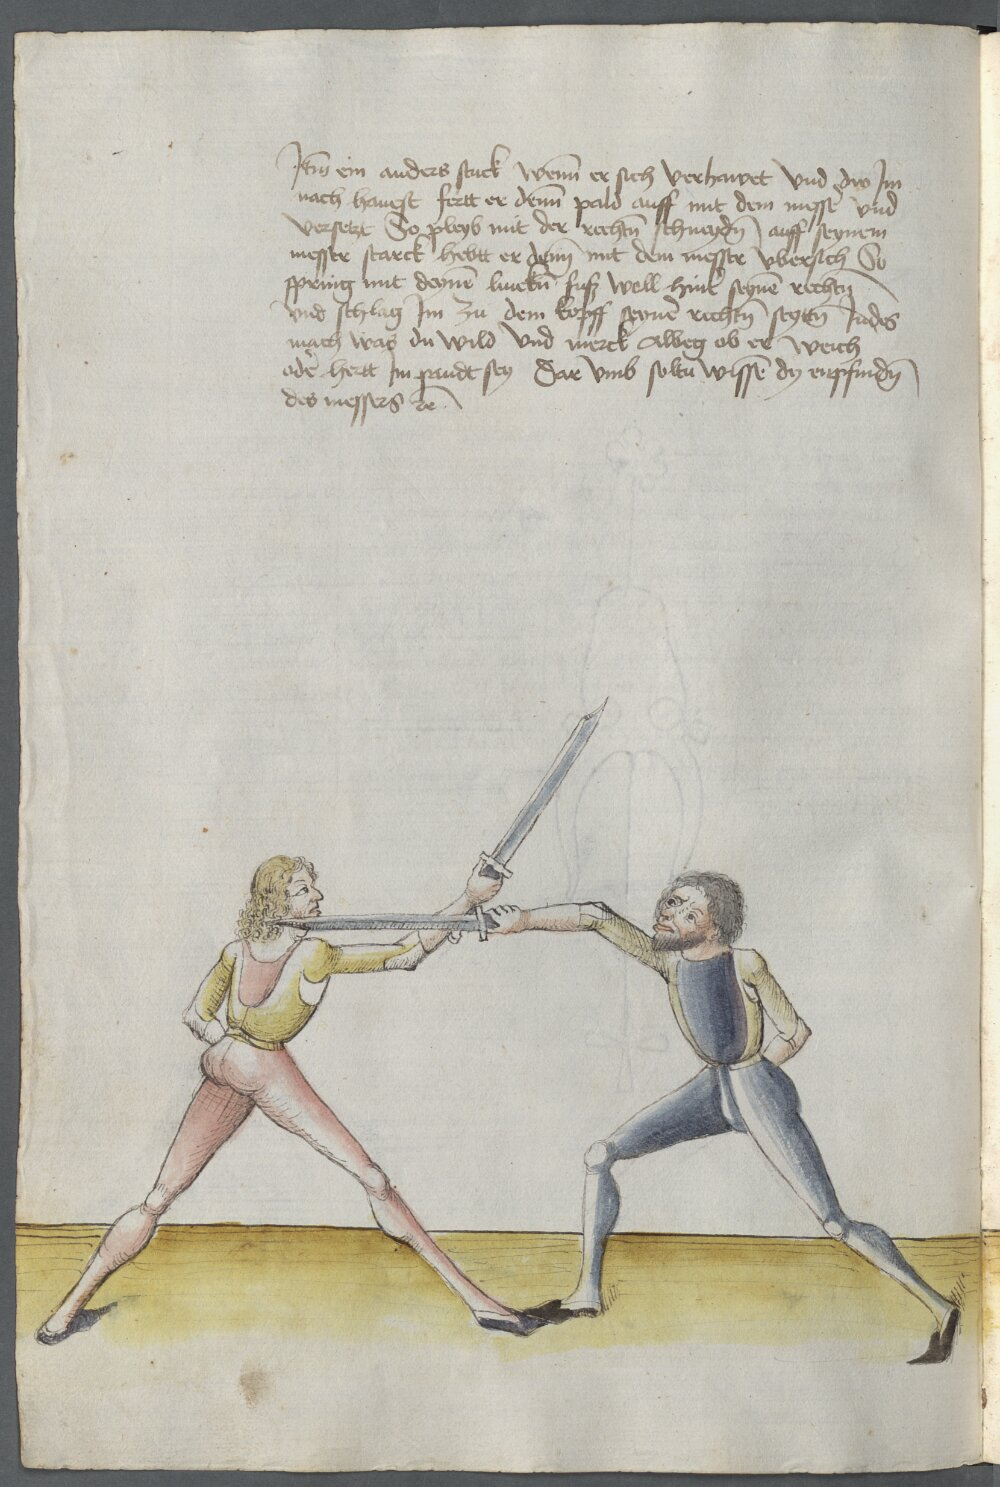 Itm̅ ein anders stuck wenn̅ er sich verhawet vnd dw Im
nach hauest fertt er denn̅ pald auff mit dem messe̅ vnd
versetzt So pleyb mit der rechtn̅ schneydn̅ auff seynem
messer starck hebtt er denn̅ mit dem messer vbersich So
spring mit deyne̅ linckn̅ fusz woll hint̕ seyne̅ rechtn̅
vnd schlag Im zu dem kopff seyne̕ rechtn̅ seytn̅ Indes
mach was du wild vnd merck albeg ob er weich
ode̕ hertt Im pandt sey Dar vmb soltu wisse̅ dz enpfindn̅
des messers